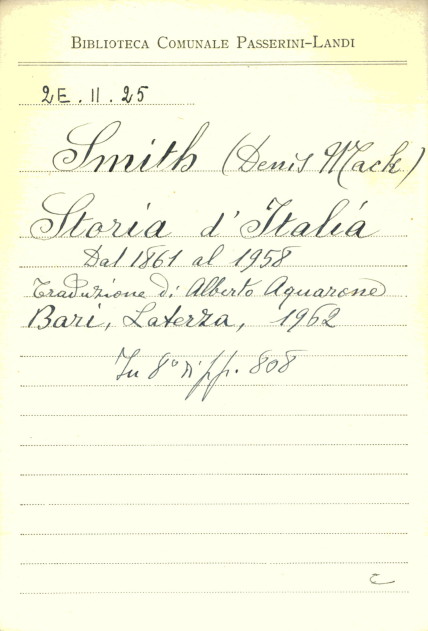 BIBLIOTECA COMUNALE PASSERINI-LANDI
2E. II. 25
Smith (Denis Mack)
Storia d'Italia
Dal 1861 al 1958
Traduzione di Alberto Aquarone
Bari, Laterza, 1962
In 8° di pp. 808
c